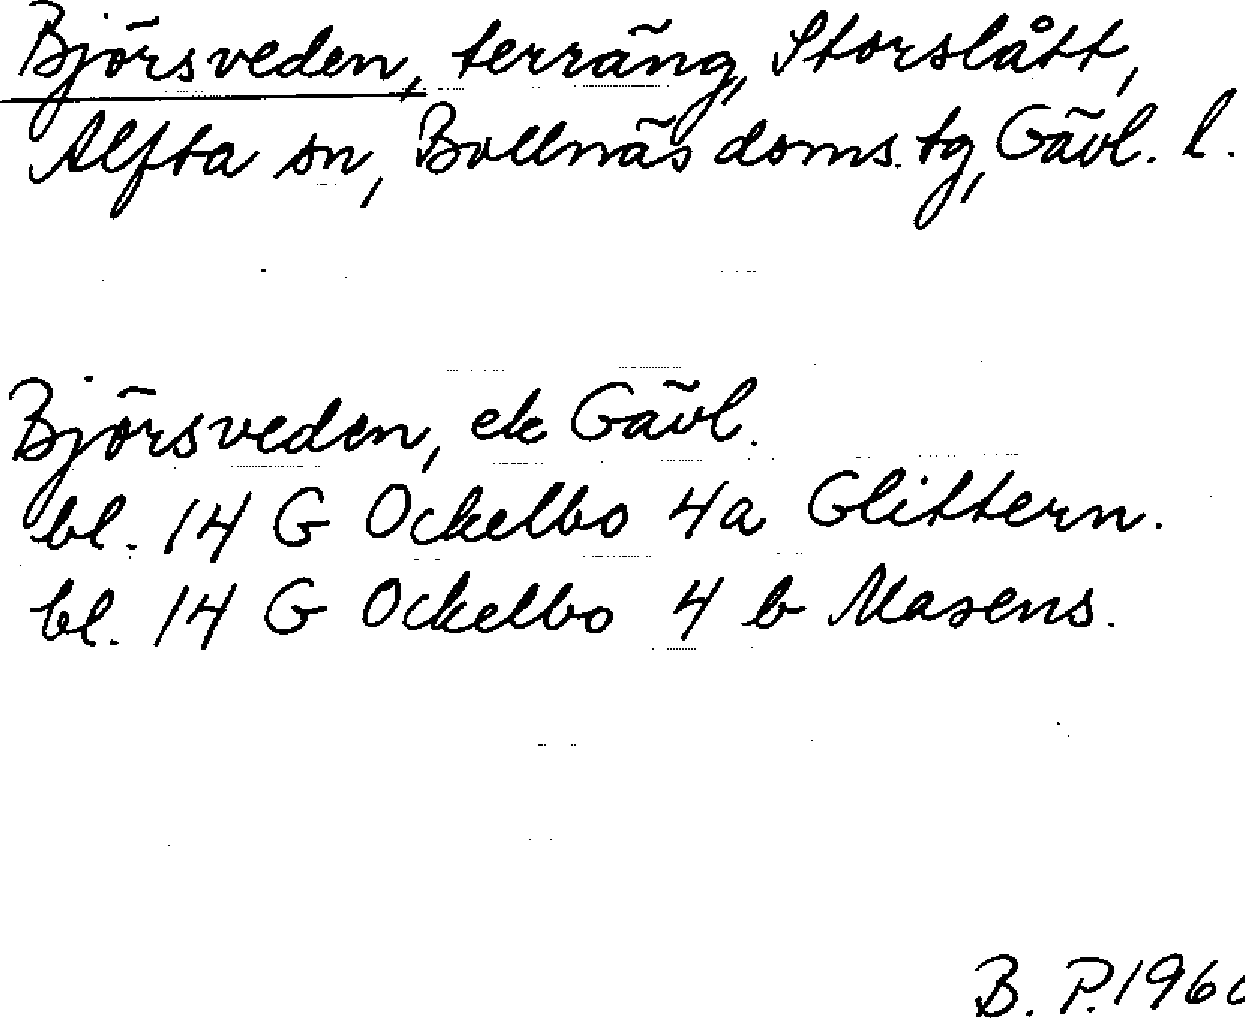 Björsveden, terräng, Storslått,
Alfta sn, Bollnäs doms. tg, Gävl. l.
Björsveden, ek Gävl.
bl. 14 G Ockelbo 4a Glittern.
bl. 14 G Ockelbo 4 b Masens.
B. P. 196